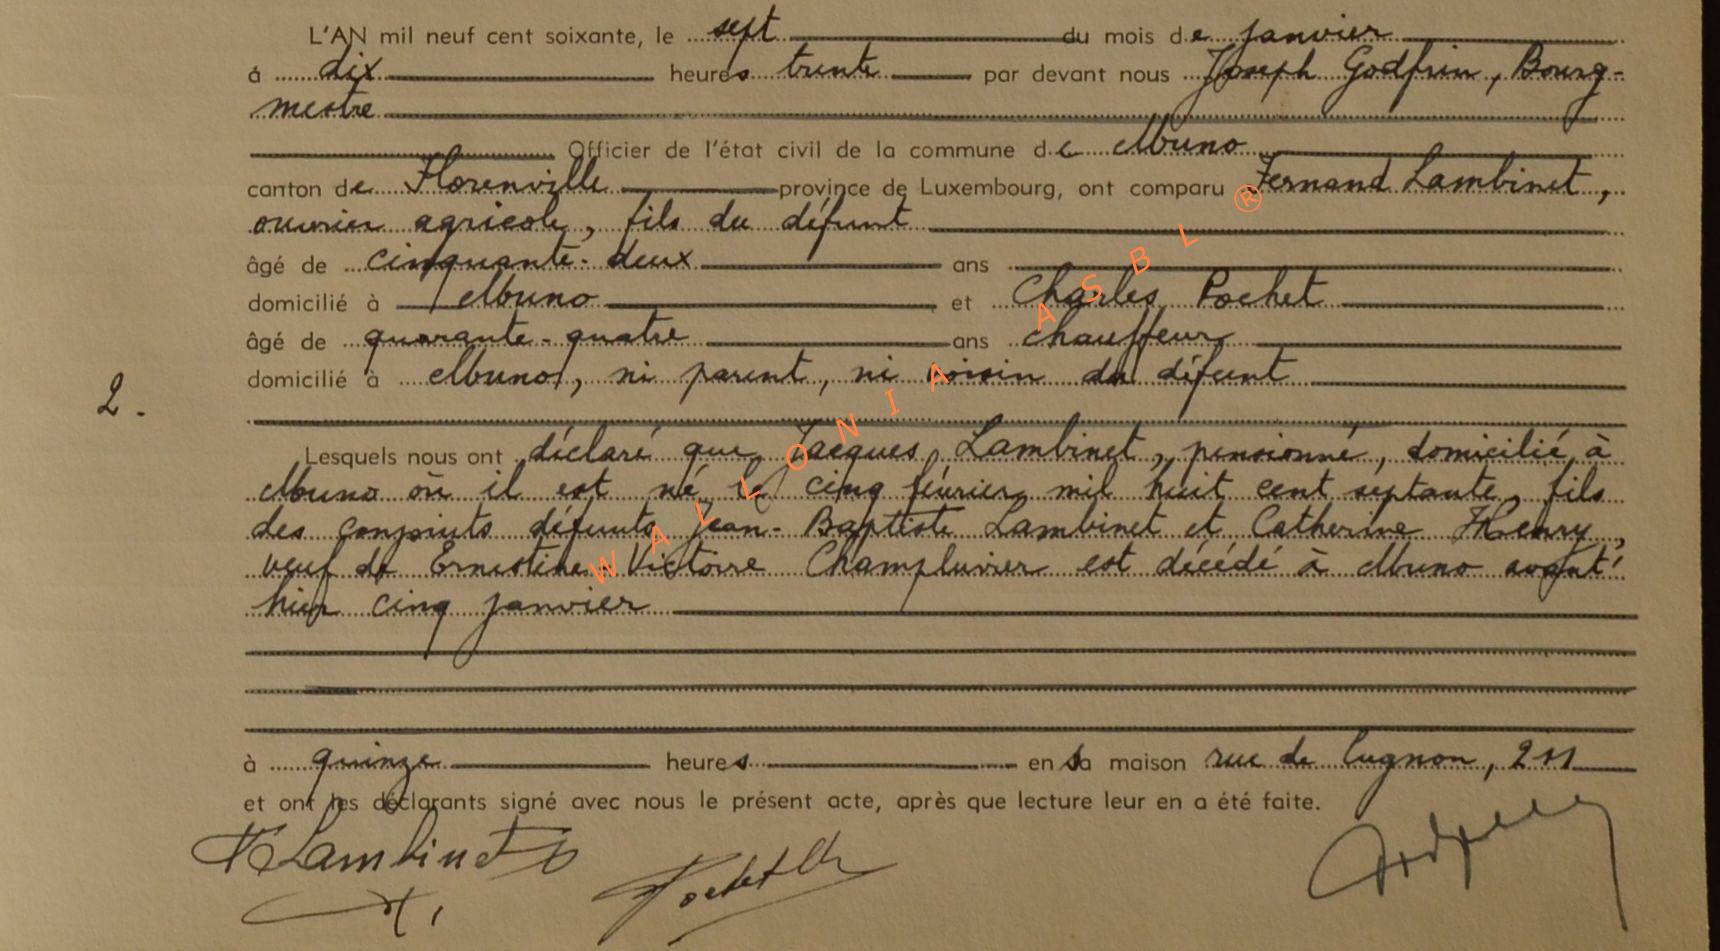 L'AN mil neuf cent soixante, le sept du mois de janvier
à dix heures trente par devant nous Joseph Godfrin, Bourg-
mestre
Officier de l'état civil de la commune de Muno
canton de Florenville province de Luxembourg, ont comparu Fernand Lambinet,
ouvrier agricole, fils du défunt
âgé de cinquante-deux ans
domicilié à Muno et Charles Pochet
âgé de quarante-quatre ans chauffeur
domicilié à Muno, ni parent, ni voisin du défunt
2.
Lesquels nous ont déclaré que Jacques Lambinet, pensionné, domicilié à
Muno où il est né le cinq février mil huit cent septante, fils
des conjoints défunts Jean-Baptiste Lambinet et Catherine Henry,
veuf de Ernestine Victoire Champluvier est décédé à Muno avant-
hier cinq janvier
à quinze heures en sa maison rue de Lugnon, 211
et ont les déclarants signé avec nous le présent acte, après que lecture leur en a été faite.
Lambinet
Pochet Ch
WALLONIA ASBL ®